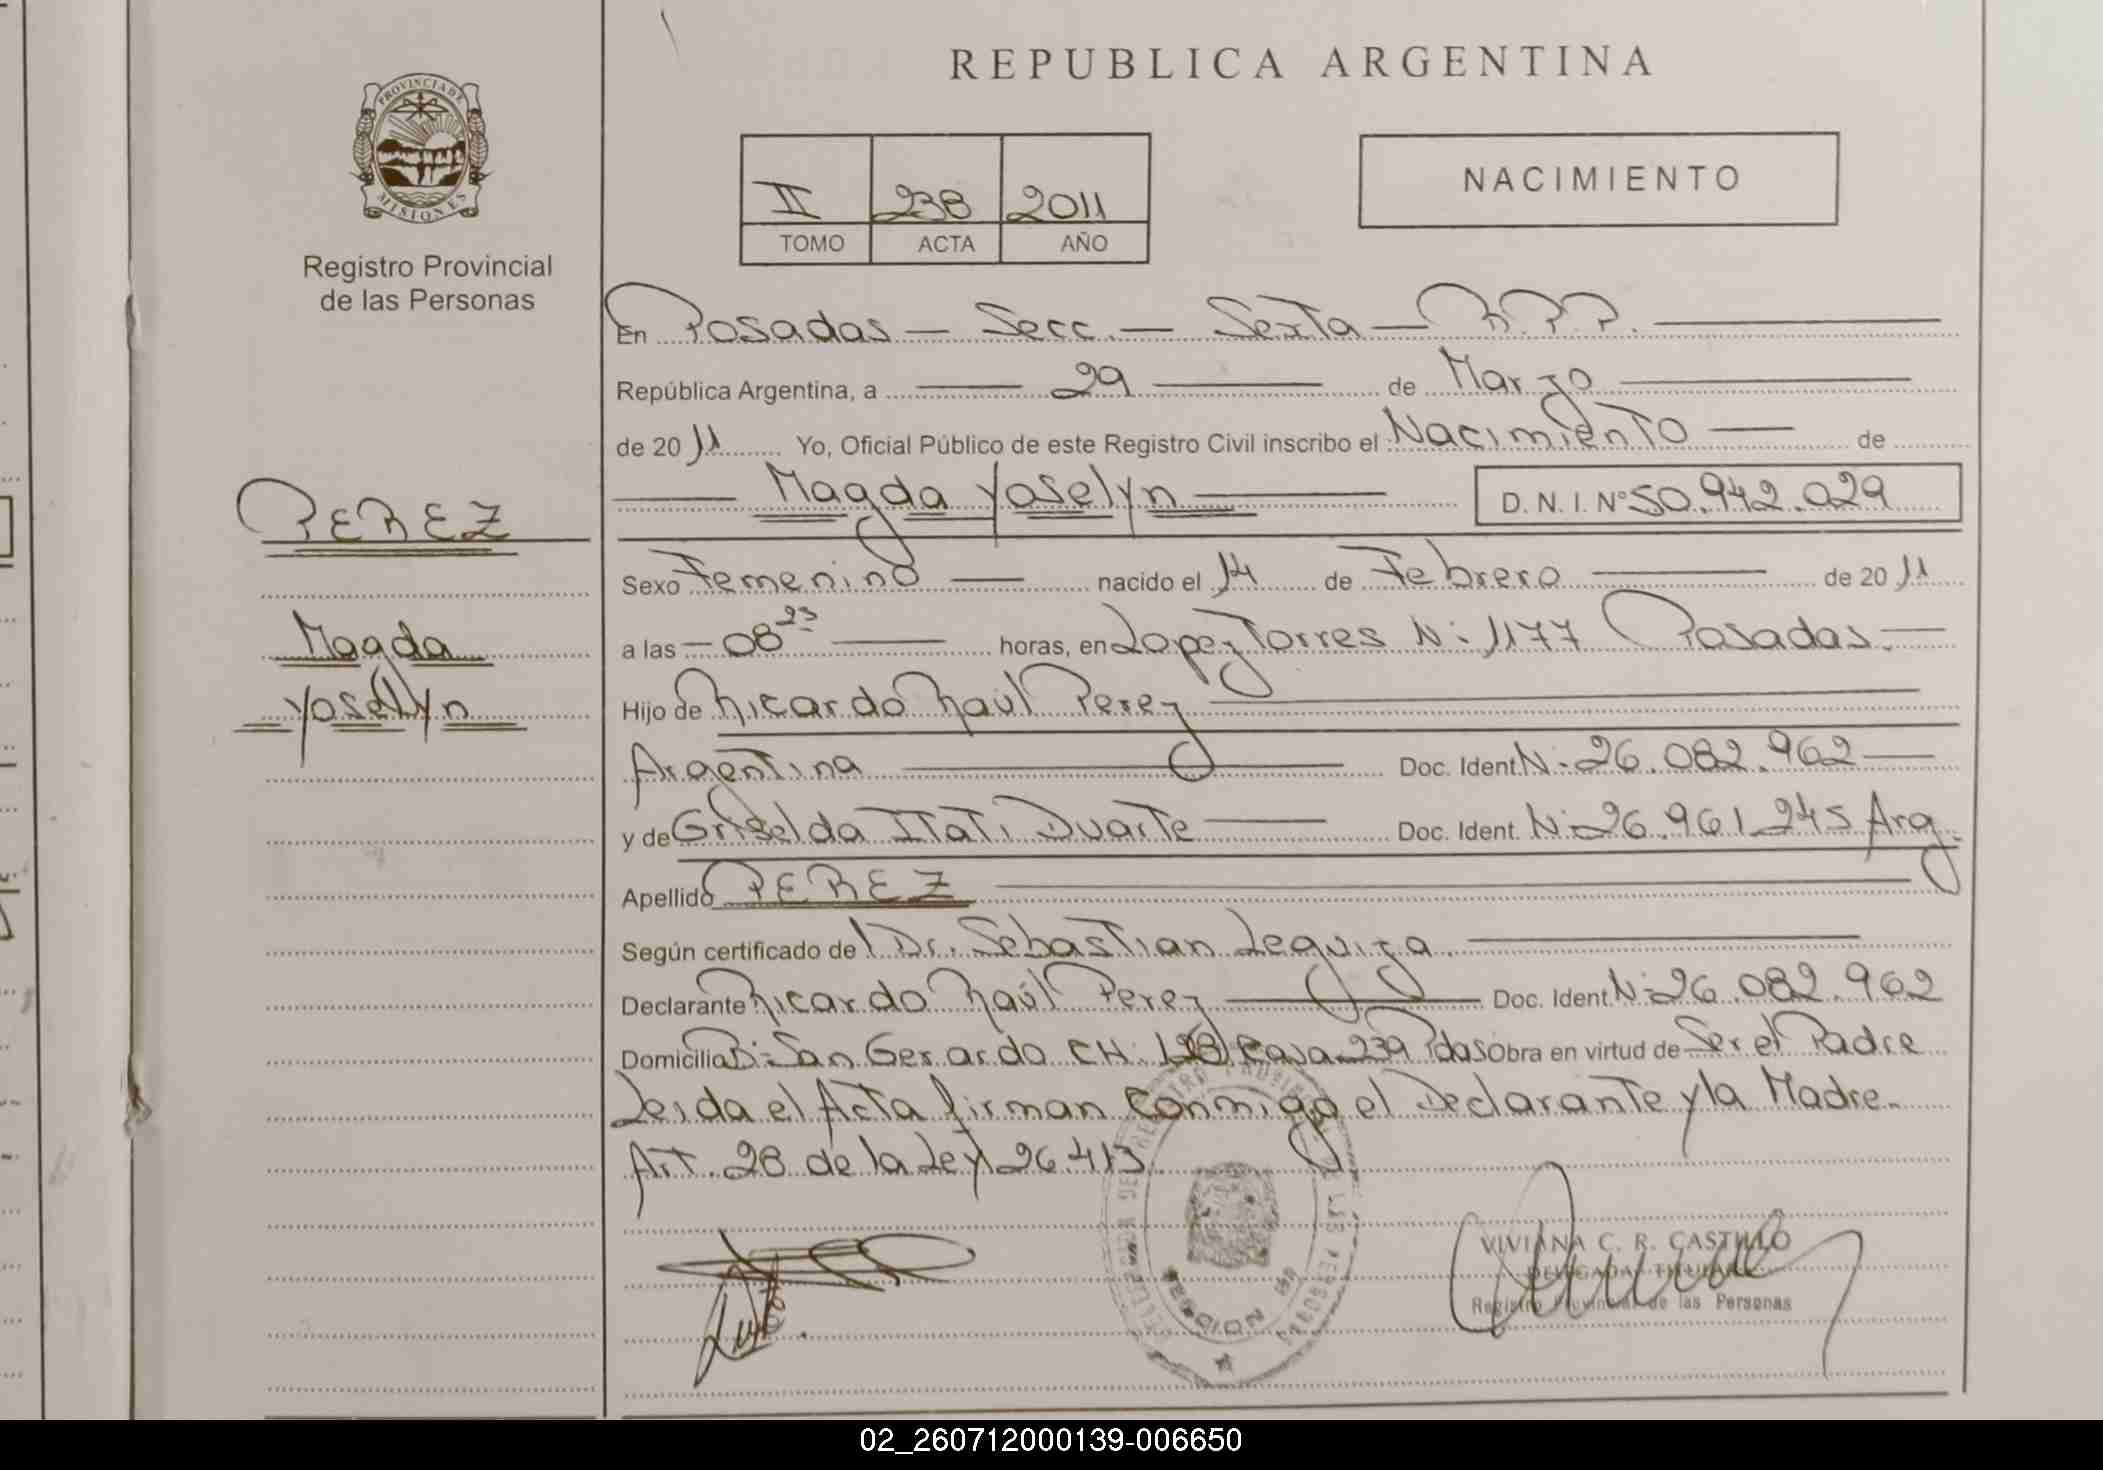 REPUBLICA ARGENTINA
PROVINCIA DE
MISIONES
Registro Provincial
de las Personas
II 238 2011
TOMO ACTA AÑO
NACIMIENTO
En Posadas — Secc. — Sexta — R.P.P.
República Argentina, a 29 de Marzo
de 2011 Yo, Oficial Público de este Registro Civil inscribo el Nacimiento — de
Magda Yoselyn D. N. I. Nº 50.942.029
PEREZ
Sexo Femenino — nacido el 14 de Febrero — de 2011
Magda
a las — 08 23 — horas, en Lopez Torres N: 1177 Posadas. —
Yoselyn
Hijo de Ricardo Raúl Perez
Argentina — Doc. Ident. N: 26.082.962 —
y de Griselda Itatí Duarte — Doc. Ident. N: 26.961.245 Arg.
Apellido PEREZ
Según certificado del Dr. Sebastian Leguiza.
Declarante Ricardo Raúl Perez — Doc. Ident. N: 26.082.962
Domicilia B: San Gerardo CH: Casa 239 Pdas Obra en virtud de Ser el Padre
Leida el Acta firman conmigo el Declarante y la Madre.
Art. 28 de la Ley 26.413
VIVIANA C. R. CASTILLO
DELEGADA TITULAR
Registro Provincial de las Personas
02_260712000139-006650